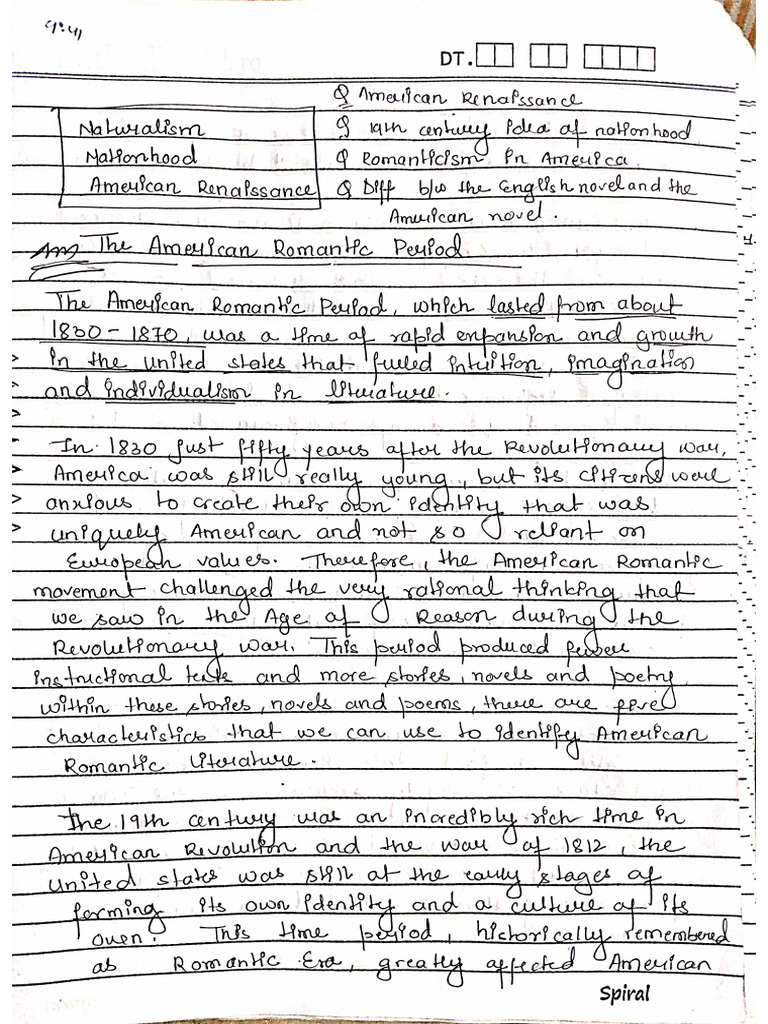 DT.
Q American Renaissance
Naturalism
Q 19th century idea of nationhood
Nationhood
Q Romanticism in America.
American Renaissance
Q Diff b/w the English novel and the
American novel.
Ans The American Romantic Period.
The American Romantic Period, which lasted from about
1830 - 1870, was a time of rapid expansion and growth
in the united states that fueled intuition, imagination
and individualism in literature.
In 1830 just fifty years after the Revolutionary war,
America was still really young, but its citizens were
anxious to create their own identity that was
uniquely American and not so reliant on
European values. Therefore, the American Romantic
movement challenged the very rational thinking that
we saw in the Age of Reason during the
Revolutionary war. This period produced fewer
instructional texts and more stories, novels and poetry
within these stories, novels and poems, there are five
characteristics that we can use to identify American
Romantic literature.
The 19th century was an incredibly rich time in
American Revolution and the war of 1812, the
United states was still at the early stages of
forming its own identity and a culture of its
own. This time period, historically remembered
as Romantic Era, greatly affected American
Spiral